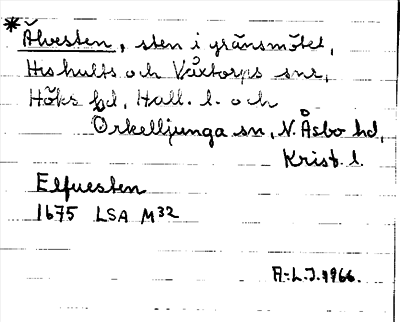 *Älvesten, sten i gränsmötet,
Hishults och Våxtorps snr,
Höks hd, Hall. l. och
Örkelljunga sn, N. Åsbo hd,
Krist. l.
Elfuesten
1675 LSA M32
A.-L.J. 1966.